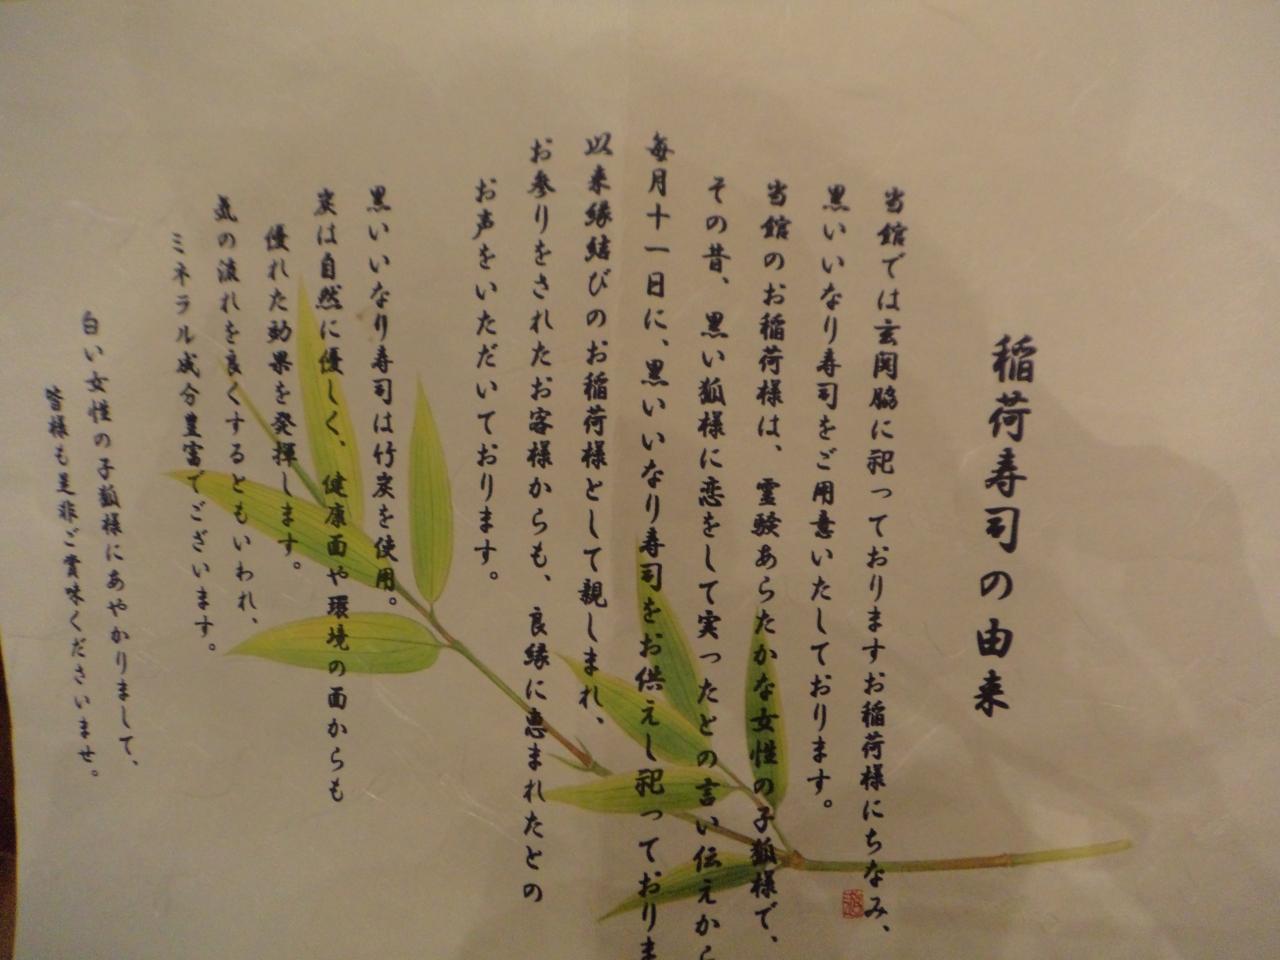 稲荷寿司の由来
当館では玄関脇に祀っておりますお稲荷様にちなみ、
黒いいなり寿司をご用意いたしております。
当館のお稲荷様は、霊験あらたかな女性の子狐様で、
その昔、黒い狐様に恋をして実ったとの言い伝えから
毎月十一日に、黒いいなり寿司をお供えし祀っておりま
以来縁結びのお稲荷様として親しまれ、
お参りをされたお客様からも、良縁に恵まれたとの
お声をいただいております。
黒いいなり寿司は竹炭を使用。
炭は自然に優しく、健康面や環境の面からも
優れた効果を発揮します。
気の流れを良くするともいわれ、
ミネラル成分豊富でございます。
白い女性の子狐様にあやかりまして、
皆様も是非ご賞味くださいませ。